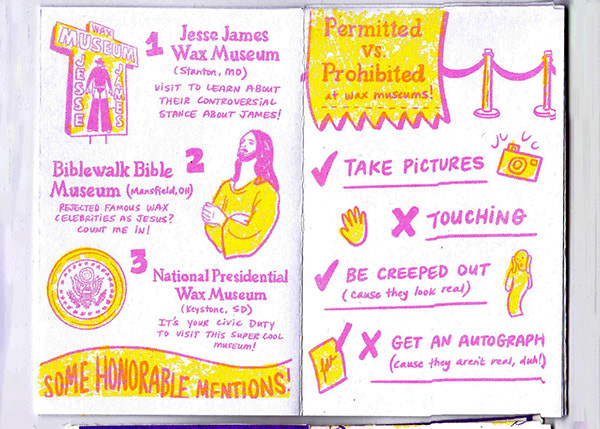 WAX
MUSEUM
JESSE
JAMES
1
Jesse James
Wax Museum
(Stanton, MO)
VISIT TO LEARN ABOUT
THEIR CONTROVERSIAL
STANCE ABOUT JAMES!
2
Biblewalk Bible
Museum (Mansfield, OH)
REJECTED FAMOUS WAX
CELEBRITIES AS JESUS?
COUNT ME IN!
3
National Presidential
Wax Museum
(Keystone, SD)
IT'S YOUR CIVIC DUTY
TO VISIT THIS SUPER COOL
MUSEUM!
SOME HONORABLE MENTIONS!
Permitted
vs.
Prohibited
at wax museums!
TAKE PICTURES
TOUCHING
BE CREEPED OUT
(cause they look real)
GET AN AUTOGRAPH
(cause they aren't real, duh!)